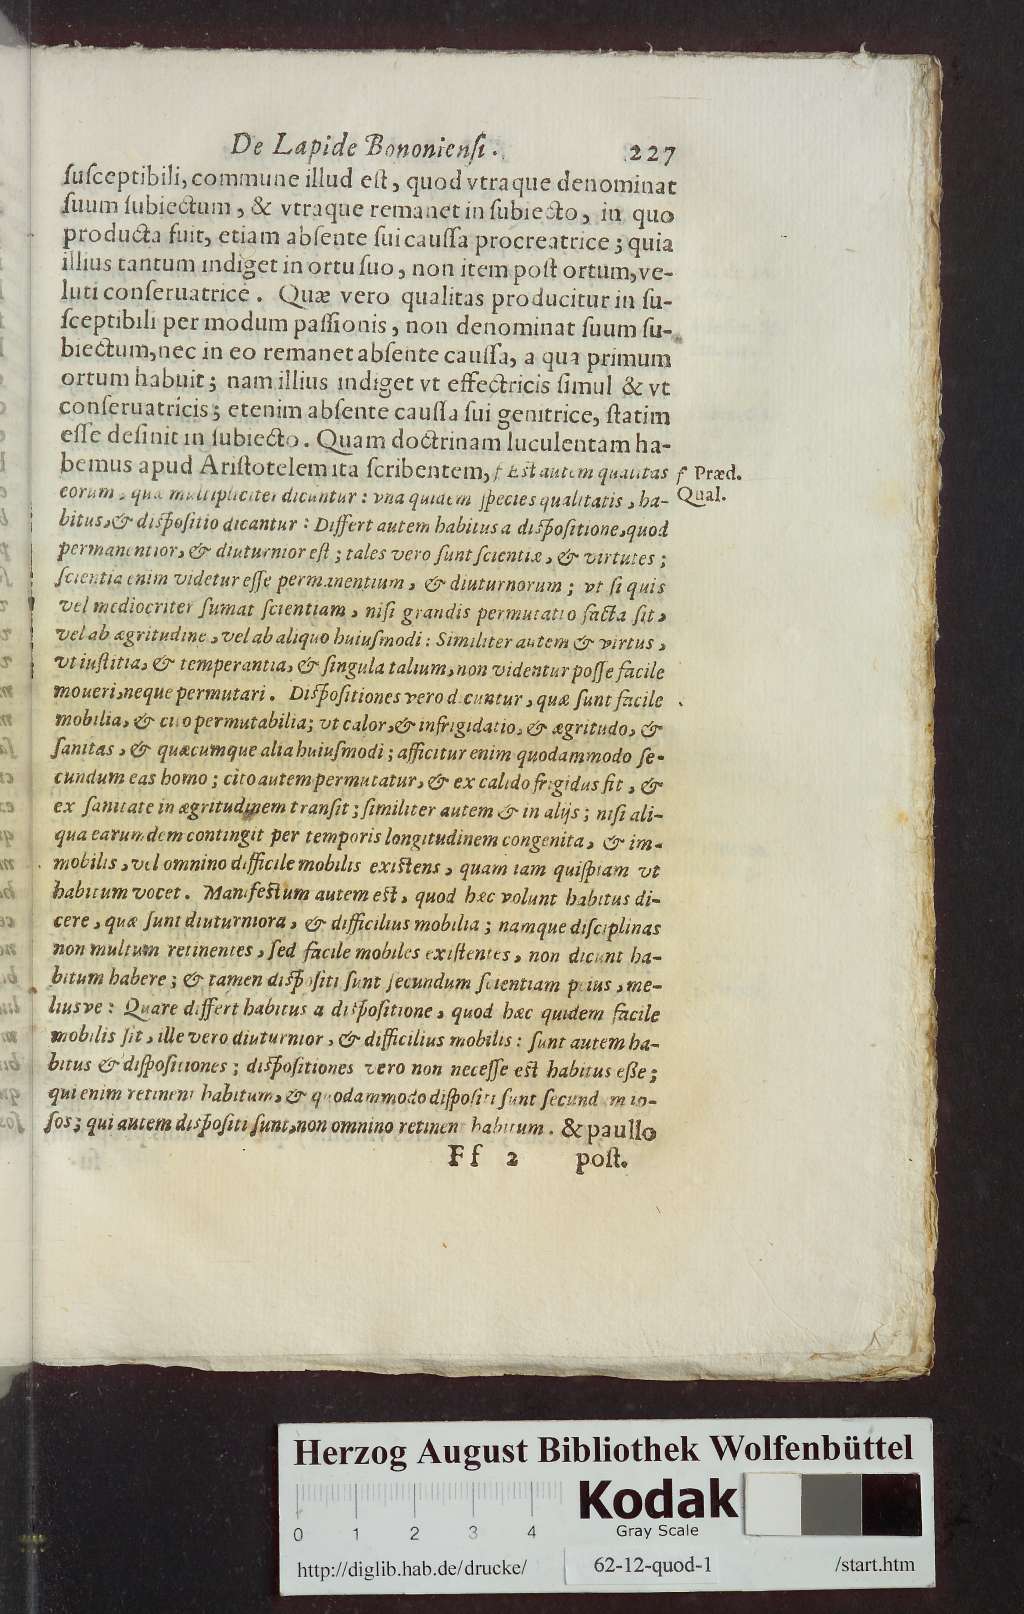 De Lapide Bononiensi. 227
ſuſceptibili, commune illud eſt, quod vtraque denominat
ſuum ſubiectum, & vtraque remanet in ſubiecto, in quo
producta fuit, etiam abſente ſui cauſſa procreatrice; quia
illius tantum indiget in ortu ſuo, non item poſt ortum, ve-
luti conſeruatrice. Quæ vero qualitas producitur in ſu-
ſceptibili per modum paſſionis, non denominat ſuum ſu-
biectum, nec in eo remanet abſente cauſſa, a qua primum
ortum habuit; nam illius indiget vt effectricis ſimul & vt
conſeruatricis; etenim abſente cauſſa ſui genitrice, ſtatim
eſſe deſinit in ſubiecto. Quam doctrinam luculentam ha-
bemus apud Ariſtotelem ita ſcribentem, f Eſt autem qualitas
f Præd.
Qual.
eorum, quæ multipliciter dicuntur: vna quidem ſpecies qualitatis, ha-
bitus, & diſpoſitio dicantur: Differt autem habitus a diſpoſitione, quod
permanentior, & diuturnior eſt; tales vero ſunt ſcientiæ, & virtutes;
ſcientia enim videtur eſſe permanentium, & diuturnorum; vt ſi quis
vel mediocriter ſumat ſcientiam, niſi grandis permutatio facta ſit,
vel ab ægritudine, vel ab aliquo huiuſmodi: Similiter autem & virtus,
vt iuſtitia, & temperantia, & ſingula talium, non videntur poſſe facile
moueri, neque permutari. Diſpoſitiones vero dicuntur, quæ ſunt facile
mobilia, & cito permutabilia; vt calor, & infrigidatio, & ægritudo, &
ſanitas, & quæcumque alia huiuſmodi; afficitur enim quodammodo ſe-
cundum eas homo; cito autem permutatur, & ex calido frigidus fit, &
ex ſanitate in ægritudinem tranſit; ſimiliter autem & in alijs; niſi ali-
qua earumdem contingit per temporis longitudinem congenita, & im-
mobilis, vel omnino difficile mobilis exiſtens, quam iam quiſpiam vt
habitum vocet. Manifeſtum autem eſt, quod hæc volunt habitus di-
cere, quæ ſunt diuturniora, & difficilius mobilia; namque diſciplinas
non multum retinentes, ſed facile mobiles exiſtentes, non dicunt ha-
bitum habere; & tamen diſpoſiti ſunt ſecundum ſcientiam peius, me-
liusve: Quare differt habitus a diſpoſitione, quod hæc quidem facile
mobilis ſit, ille vero diuturnior, & difficilius mobilis: ſunt autem ha-
bitus & diſpoſitiones; diſpoſitiones vero non neceſſe eſt habitus eſſe;
qui enim retinent habitum, & quodammodo diſpoſiti ſunt ſecundum ip-
ſos; qui autem diſpoſiti ſunt, non omnino retinent habitum. & paullo
Ff 2 poſt.
Herzog August Bibliothek Wolfenbüttel
Kodak
Gray Scale
0 1 2 3 4
http://diglib.hab.de/drucke/ 62-12-quod-1 /start.htm